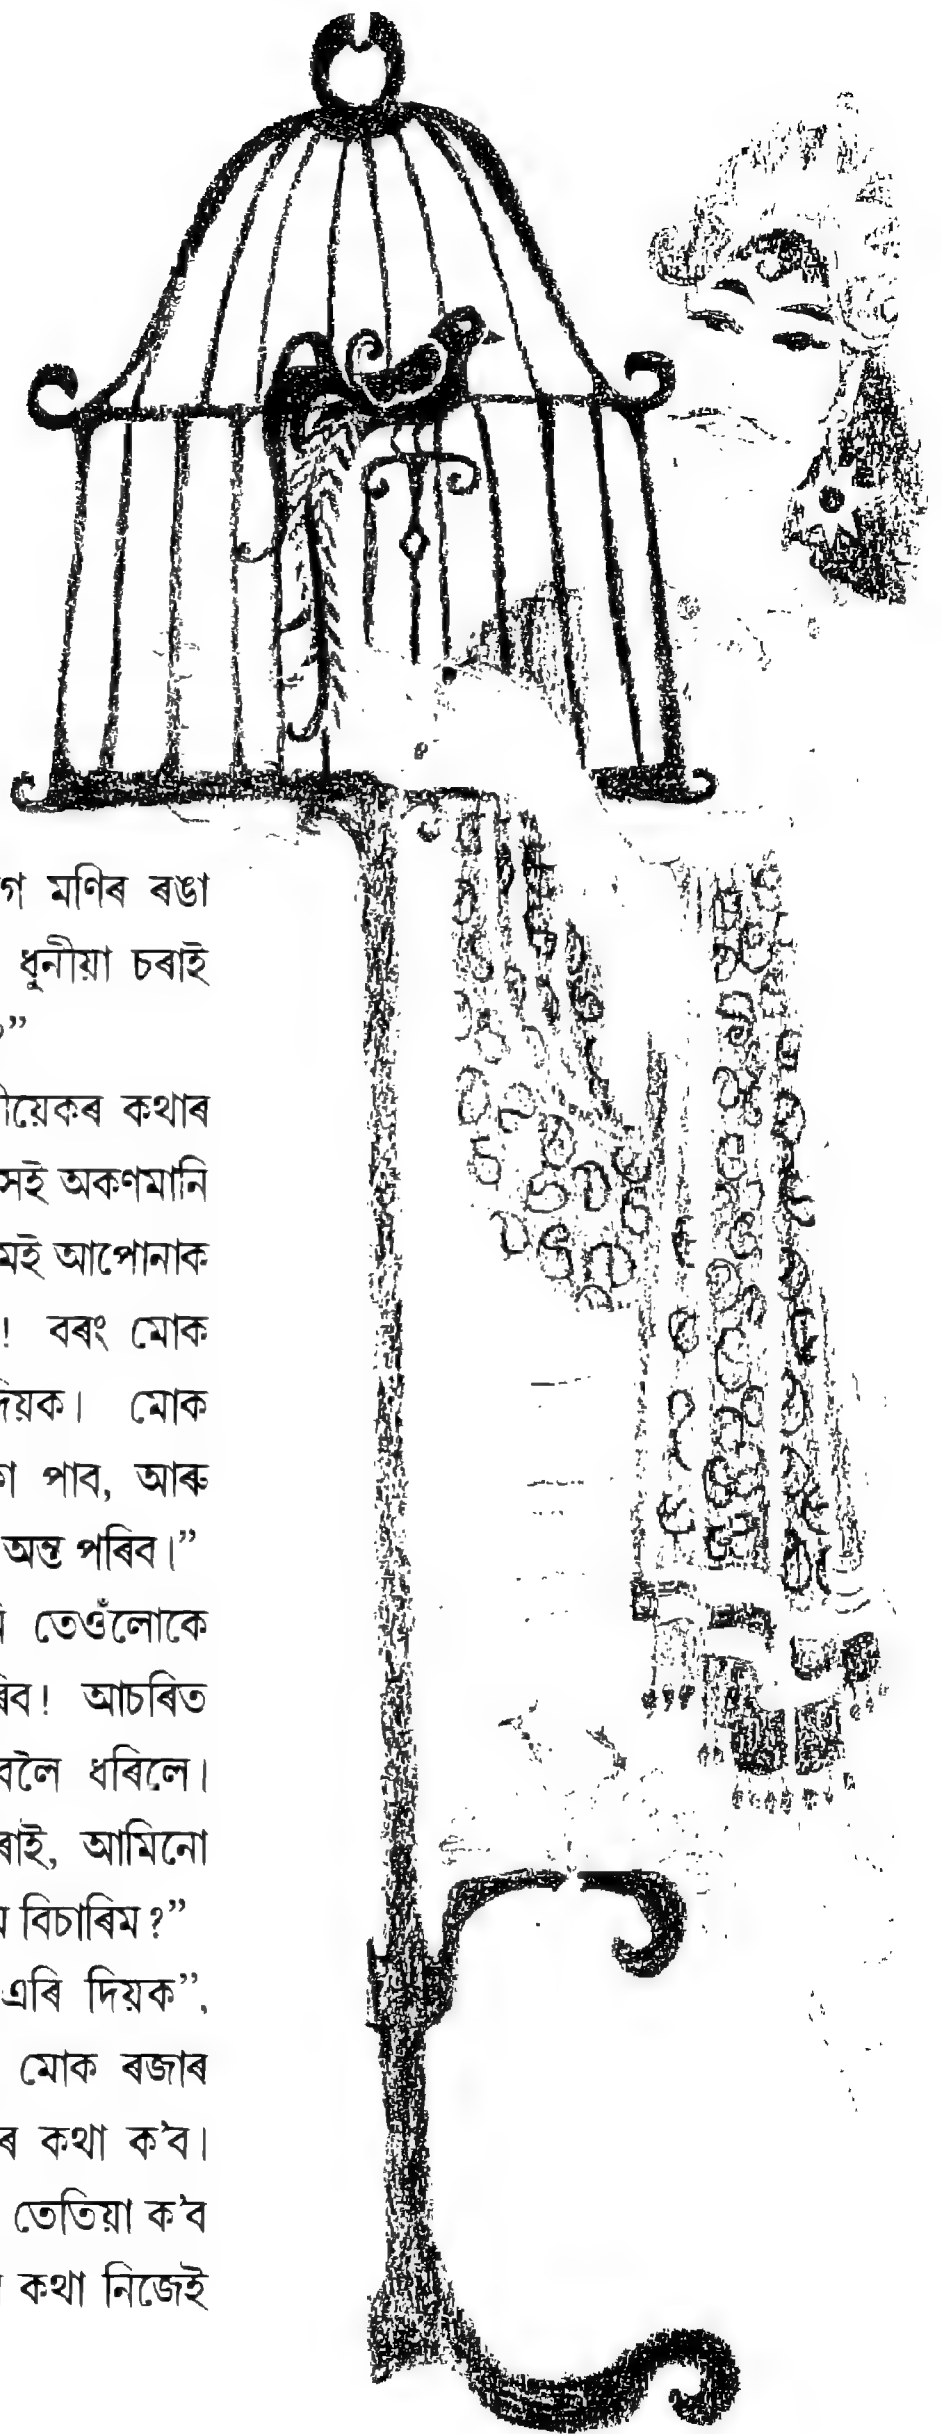 মণিৰ ৰঙা
ধুনীয়া চৰাই
”
কথাৰ
অকণমানি
আপোনাক
! বৰং মোক
মোক
পাব, আৰু
অন্ত পৰিব।”
তেওঁলোকে
আচৰিত
ধৰিলে।
আমিনো
বিচাৰিম?”
এৰি দিয়ক”,
মোক ৰজাৰ
কথা ক'ব।
তেতিয়া ক'ব
কথা নিজেই